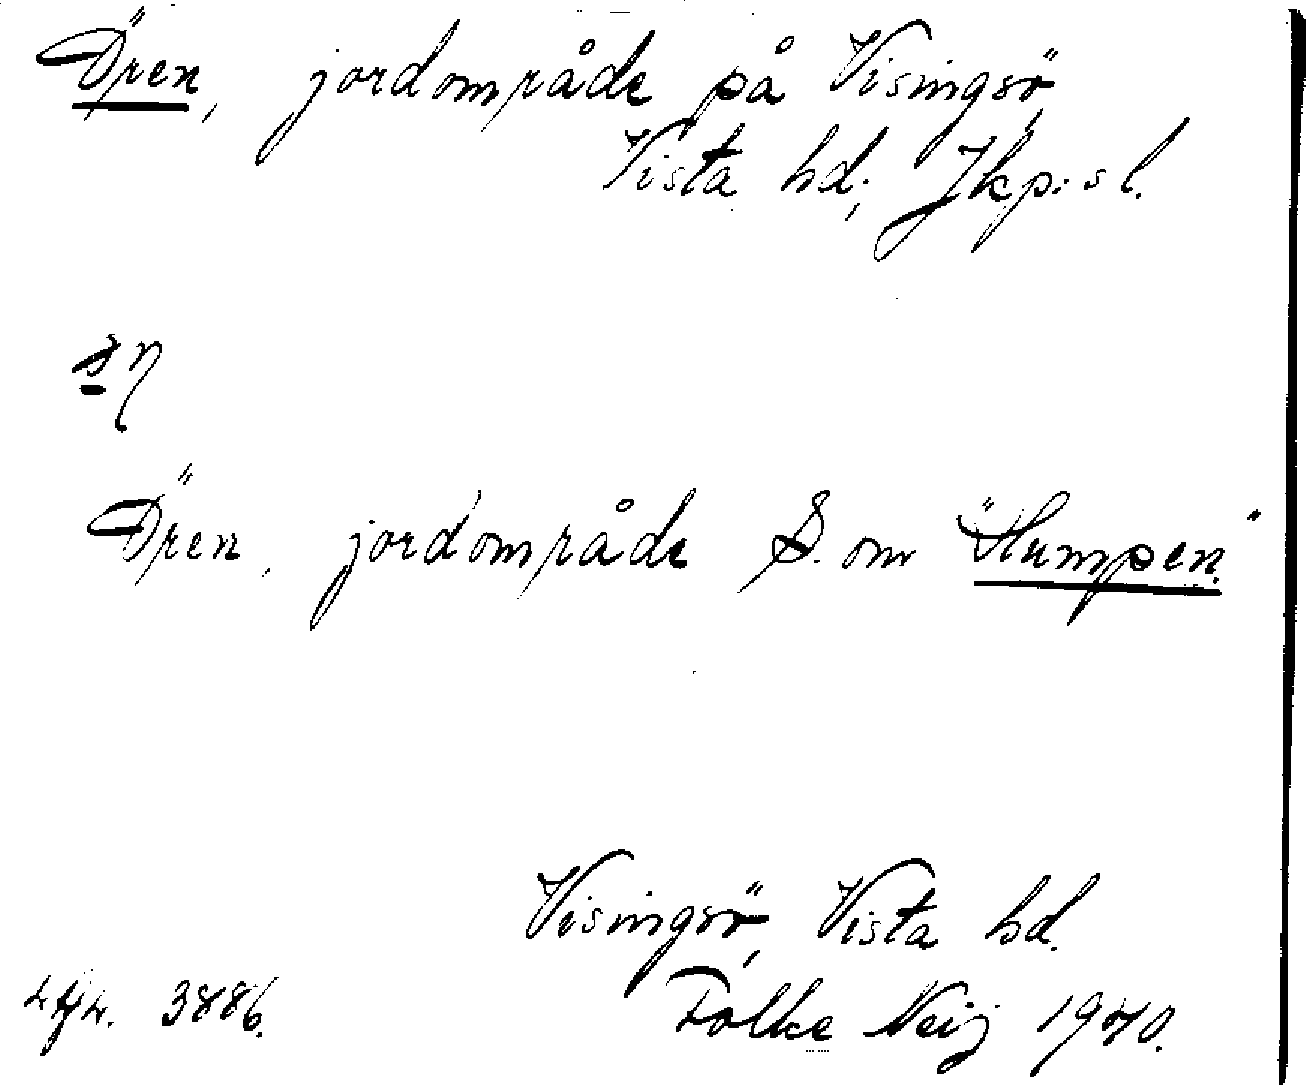 Ören, jordområde på Visingsö,
Vista hd, Jkp:s l.
Ören, jordområde S. om "Humpen."
Visingsö, Vista hd.
3886. Folke Neij 1940.